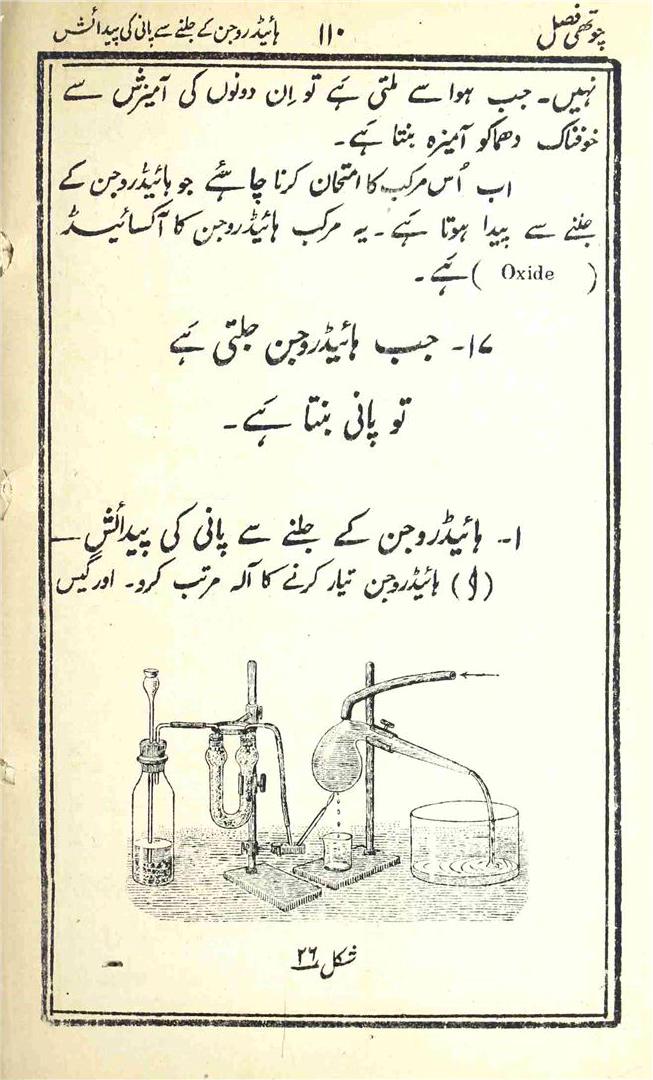 چوتھی فصل ۱۱۰ ہائیڈروجن کے جلنے سے پانی کی پیدائش
نہیں۔ جب ہوا سے ملتی ہے تو اِن دونوں کی آمیزش سے
خوفناک دھماکو آمیزہ بنتا ہے۔
اب اُس مرکب کا امتحان کرنا چاہئے جو ہائیڈروجن کے
جلنے سے پیدا ہوتا ہے۔ یہ مرکب ہائیڈروجن کا آکسائیڈ
(Oxide) ہے۔
۱۷۔ جب ہائیڈروجن جلتی ہے
تو پانی بنتا ہے۔
۱۔ ہائیڈروجن کے جلنے سے پانی کی پیدائش—
(ا) ہائیڈروجن تیار کرنے کا آلہ مرتب کرو۔ اور گیس
شکل ۲۶